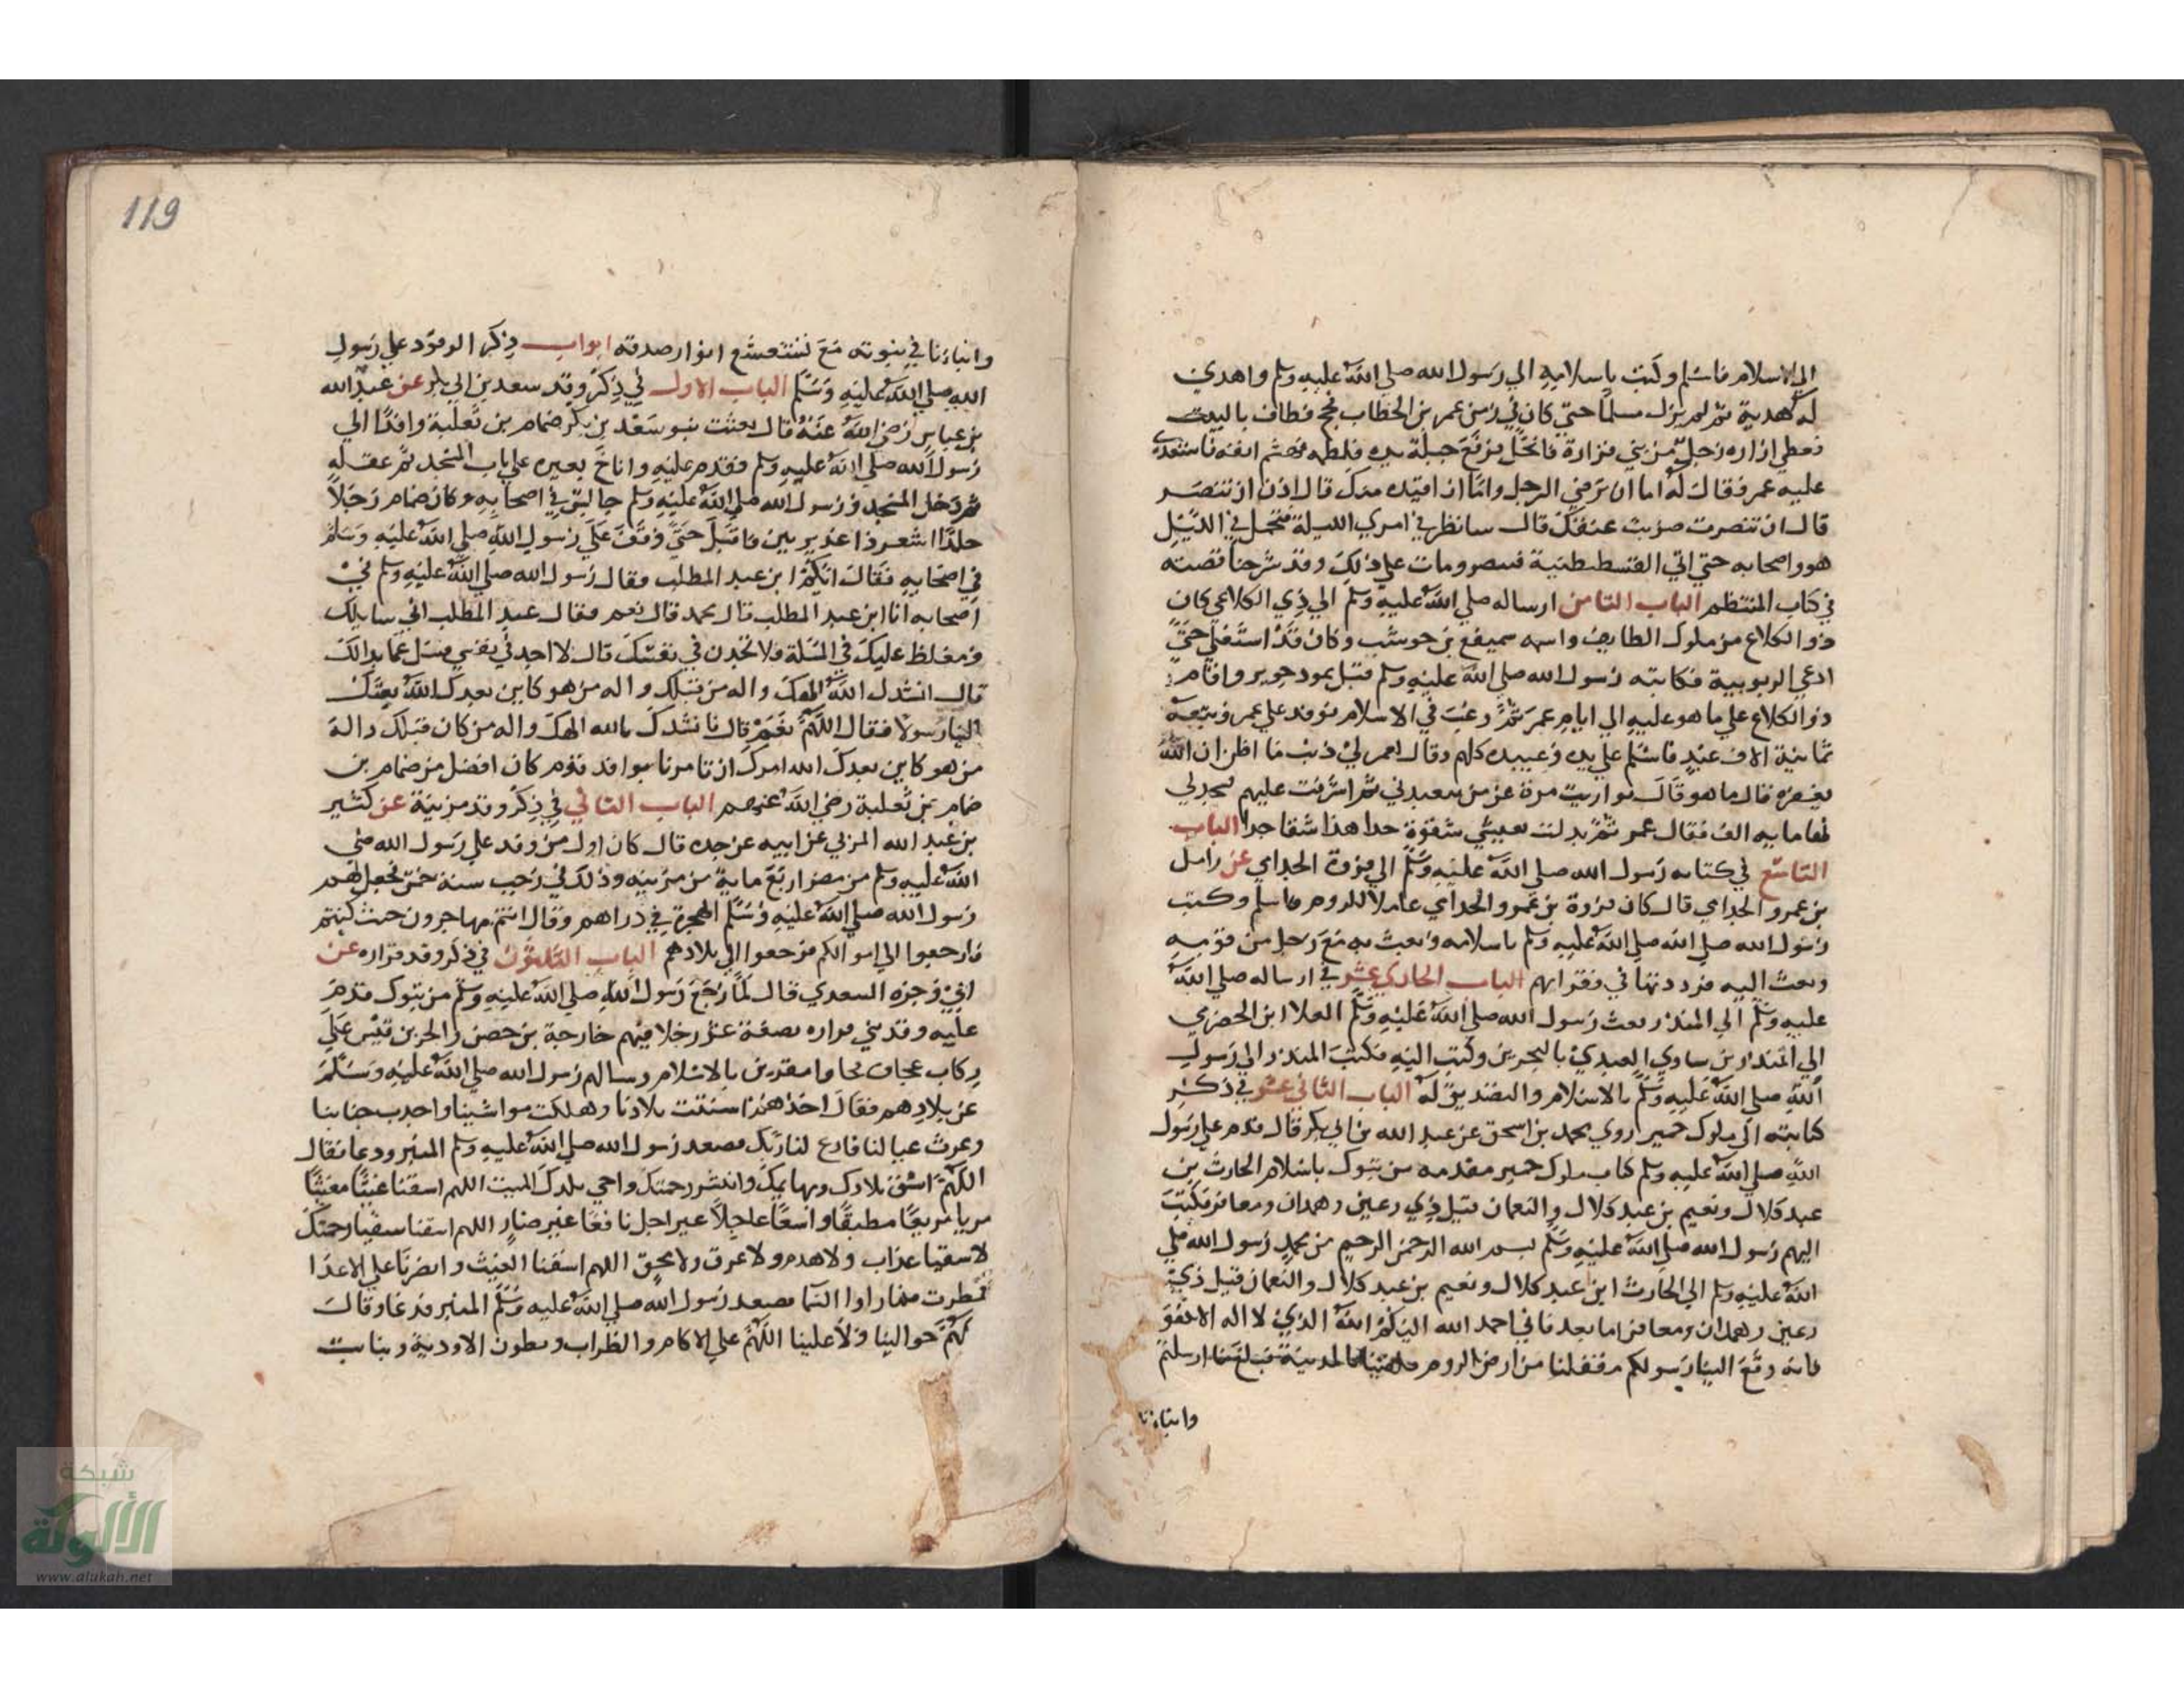 الي الاسلام فاسلم وكتب باسلامه الي رسول الله صلي الله عليه وسلم واهدي
له هدية ثم لم يزل مسلما حتي كان في زمن عمر بن الخطاب فحج فطاف بالبيت
فوطي ازاره رجل من بني فزارة فانحل فرفع جبلة يده فلطمه فهشم انفه فاستعدي
عليه عمر فقال له اما ان ترضي الرجل واما ان اقيده منك قال اذن اتنصر
قال ان تنصرت ضربت عنقك قال سانظر في امري الليلة فتحمل في الليل
هو واصحابه حتي اتي القسطنطنية فتنصر ومات علي ذلك وقد شرحنا قصته
في كتاب المنتظم الباب الثامن ارساله صلي الله عليه وسلم الي ذي الكلاع كان
ذو الكلاع من ملوك الطايف واسمه سميفع بن حوشب وكان قد استعلي حتي
ادعي الربوبية فكاتبه رسول الله صلي الله عليه وسلم قبل يعود جرير واقام
ذو الكلاع علي ما هو عليه الي ايام عمر ثم رغب في الاسلام فوفد علي عمر ومعه
ثمانية الاف عبد فاسلم علي يده وعبيده كلهم وقال لعمر لي ذنب ما اظن ان الله
يغفره قال ما هو قال تواريت مرة عن من يعبدني ثم اشرفت عليهم فسجد لي
الباب
التاسع في كتابه رسول الله صلي الله عليه وسلم الي فروة الجذامي عن رامل
بن عمرو الجذامي قال كان فروة بن عمرو الجذامي عاملا للروم فاسلم وكتب
رسول الله صلي الله عليه وسلم باسلامه وبعث به مع رجل من قومه
وبعث اليه فرددتها في فقرائهم الباب الحادي عشر في ارساله صلي الله
عليه وسلم الي المنذر بعث رسول الله صلي الله عليه وسلم العلا ابن الحضرمي
الي المنذر بن ساوي العبدي بالبحرين وكتب اليه فكتب المنذر الي رسول
الله صلي الله عليه وسلم بالاسلام والتصديق له الباب الثاني عشر في ذكر
كتابته الي ملوك حمير روي محمد بن اسحق عن عبد الله بن ابي بكر قال قدم علي رسول
الله صلي الله عليه وسلم كتاب ملوك حمير مقدمه من تبوك باسلام الحارث بن
عبد كلال ونعيم بن عبد كلال والنعمان قيل ذي رعين وهمدان ومعافر فكتب
اليهم رسول الله صلي الله عليه وسلم بسم الله الرحمن الرحيم من محمد رسول الله صلي
الله عليه وسلم الي الحارث ابن عبد كلال ونعيم بن عبد كلال والنعمان قيل ذي
رعين وهمدان ومعافر اما بعد فاني احمد الله اليكم الله الذي لا اله الا هو
فانه وقع الينا رسولكم مقفلنا من ارض الروم فلقينا بالمدينة فبلغ ما ارسلتم
وانباءنا
119
وانباءنا في نبوته مع تشعشع انوار صدقه ابواب ذكر الوفود علي رسول
الله صلي الله عليه وسلم الباب الاول في ذكر وفد سعد بن ابي بكر عن عبد الله
بن عباس رضي الله عنه قال بعثت بنو سعد بن بكر ضمام بن ثعلبة وافدا الي
رسول الله صلي الله عليه وسلم فقدم عليه واناخ بعيره علي باب المسجد ثم عقله
ثم دخل المسجد ورسول الله صلي الله عليه وسلم جالس في اصحابه وكان ضمام رجلا
جلدا اشعر ذا غديرتين فاقبل حتي وقف علي رسول الله صلي الله عليه وسلم
في اصحابه فقال ايكم ابن عبد المطلب فقال رسول الله صلي الله عليه وسلم في
اصحابه انا ابن عبد المطلب قال محمد قال نعم فقال عبد المطلب اني سايلك
ومغلظ عليك في المسلة فلا تجدن في نفسك قال لا اجد في نفسي فسل عما بدالك
قال انشدك الله الهك واله من قبلك واله من هو كاين بعدك الله بعثك
الينا رسولا فقال اللهم نعم قال فانشدك بالله الهك واله من كان قبلك واله
من هو كاين بعدك الله امرك ان تامرنا بوافد قوم كان افضل من ضمام بن
ضمام بن ثعلبة رضي الله عنهم الباب الثاني في ذكر وفد مزينة عن كثير
بن عبد الله المزني عن ابيه عن جده قال كان اول من وفد علي رسول الله صلي
الله عليه وسلم من مضر اربع ماية من مزينه وذلك في رجب سنة خمس فجعل لهم
رسول الله صلي الله عليه وسلم الهجرة في دراهم وقال انتم مهاجرون حيث كنتم
فارجعوا الي اموالكم فرجعوا الي بلادهم الباب الثلثون في ذكر وفد فزاره عن
ابي وجزه السعدي قال لما رجع رسول الله صلي الله عليه وسلم من تبوك قدم
عليه وفد بني فزاره بضعة عشر رجلا فيهم خارجة بن حصن والحر بن قيس علي
ركاب عجاف فجاوا مقرين بالاسلام وسالهم رسول الله صلي الله عليه وسلم
عن بلادهم فقال احدهم اسنتت بلادنا وهلكت مواشينا واجدب جنابنا
وغرث عيالنا فادع لنا ربك فصعد رسول الله صلي الله عليه وسلم المنبر ودعا فقال
اللهم اسق بلادك وبهايمك وانشر رحمتك واحي بلدك الميت اللهم اسقنا غيثا مغيثا
مريا مريعا مطبقا واسعا عاجلا غير اجل نافعا غير ضار اللهم اسقنا سقيا رحمتك
لا سقيا عذاب ولا هدم ولا غرق ولا محق اللهم اسقنا الغيث وانصرنا علي الاعدا
فمطرت فما راوا السما فصعد رسول الله صلي الله عليه وسلم المنبر فدعا وقال
اللهم حوالينا ولا علينا اللهم علي الاكام والظراب وبطون الاودية ومنابت
شبكة
الألوكة
www.alukah.net